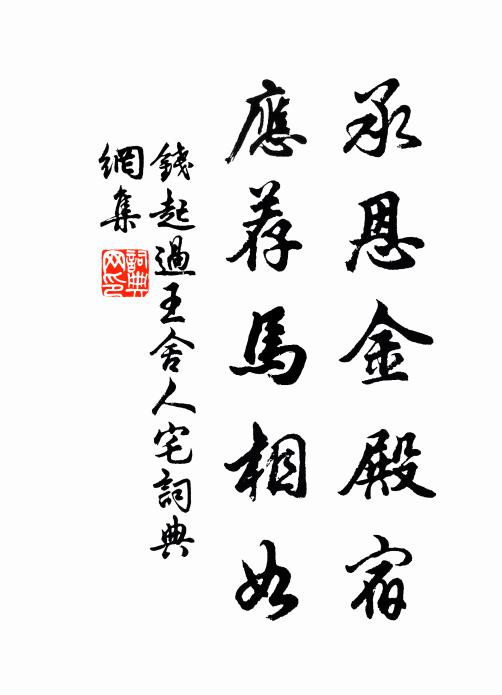 承恩金殿宿
應荐馬相如
錢起過王舍人宅詞典
網集
詞典網印